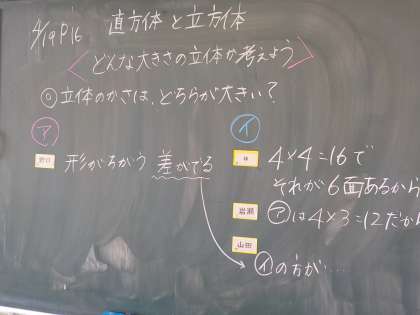 4/19 P16 直方体と立方体
〈どんな大きさの立体か考えよう〉
◎立体のかさは、どちらが大きい?
㋐
㋑
野口 形がちがう 差がでる
林 4×4=16で
それが6面あるから
岩瀬 ㋐は4×3=12だか
山田
㋑の方が…